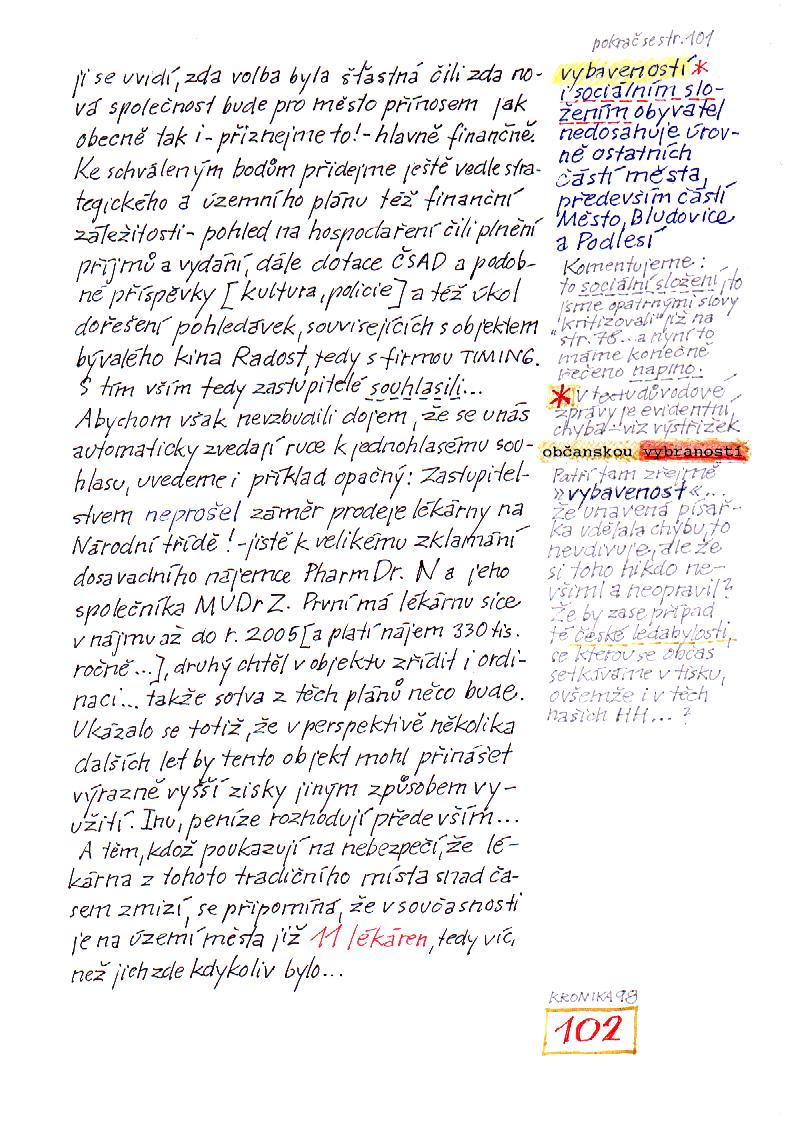 ji se uvidí, zda volba byla šťastná čili zda no-
vá společnost bude pro město přínosem jak
obecně tak i - přiznejme to! - hlavně finančně.
Ke schváleným bodům přidejme ještě vedle stra-
tegického a územního plánu též finanční
záležitosti - pohled na hospodaření čili plnění
příjmů a vydání, dále dotace ČSAD a podob-
né příspěvky [kultura, policie] a též úkol
dořešení pohledávek, souvisejících s objektem
bývalého kina Radost, tedy s firmou TIMING.
S tím vším tedy zastupitelé souhlasili...
Abychom však nevzbudili dojem, že se u nás
automaticky zvedají ruce k jednohlasému sou-
hlasu, uvedeme i příklad opačný: Zastupitel-
stvem neprošel záměr prodeje lékárny na
Národní třídě! - jistě k velikému zklamání
dosavadního nájemce PharmDr. N a jeho
společníka MUDr Z. První má lékárnu sice
v nájmu až do r. 2005 [a platí nájem 330 tis.
ročně...], druhý chtěl v objektu zřídit i ordi-
naci... takže sotva z těch plánů něco bude.
Ukázalo se totiž, že v perspektivě několika
dalších let by tento objekt mohl přinášet
výrazně vyšší zisky jiným způsobem vy-
užití. Inu, peníze rozhodují především...
A těm, kdož poukazují na nebezpečí, že lé-
kárna z tohoto tradičního místa snad ča-
sem zmizí, se připomíná, že v současnosti
je na území města již 11 lékáren, tedy víc,
než jich zde kdykoliv bylo...
pokrač se str. 101
vybaveností *
i sociálním slo-
žením obyvatel
nedosahuje úrov-
ně ostatních
částí města,
především částí
Město, Bludovice
a Podlesí
Komentujeme:
to sociální složení, to
jsme opatrnými slovy
"kritizovali" již na
str. 78... a nyní to
máme konečně
řečeno naplno.
* V textu důvodové
zprávy je evidentní
chyba - viz výstřižek
občanskou vybraností
Patří tam zřejmě
»vybavenost«...
že unavená písař-
ka udělala chybu, to
nevdivuje, ale že
si toho nikdo ne-
všiml a neopravil?
Že by zase případ
té české ledabylosti,
se kterou se občas
setkáváme v tisku,
ovšemže i v těch
našich HH...?
KRONIKA 98
102